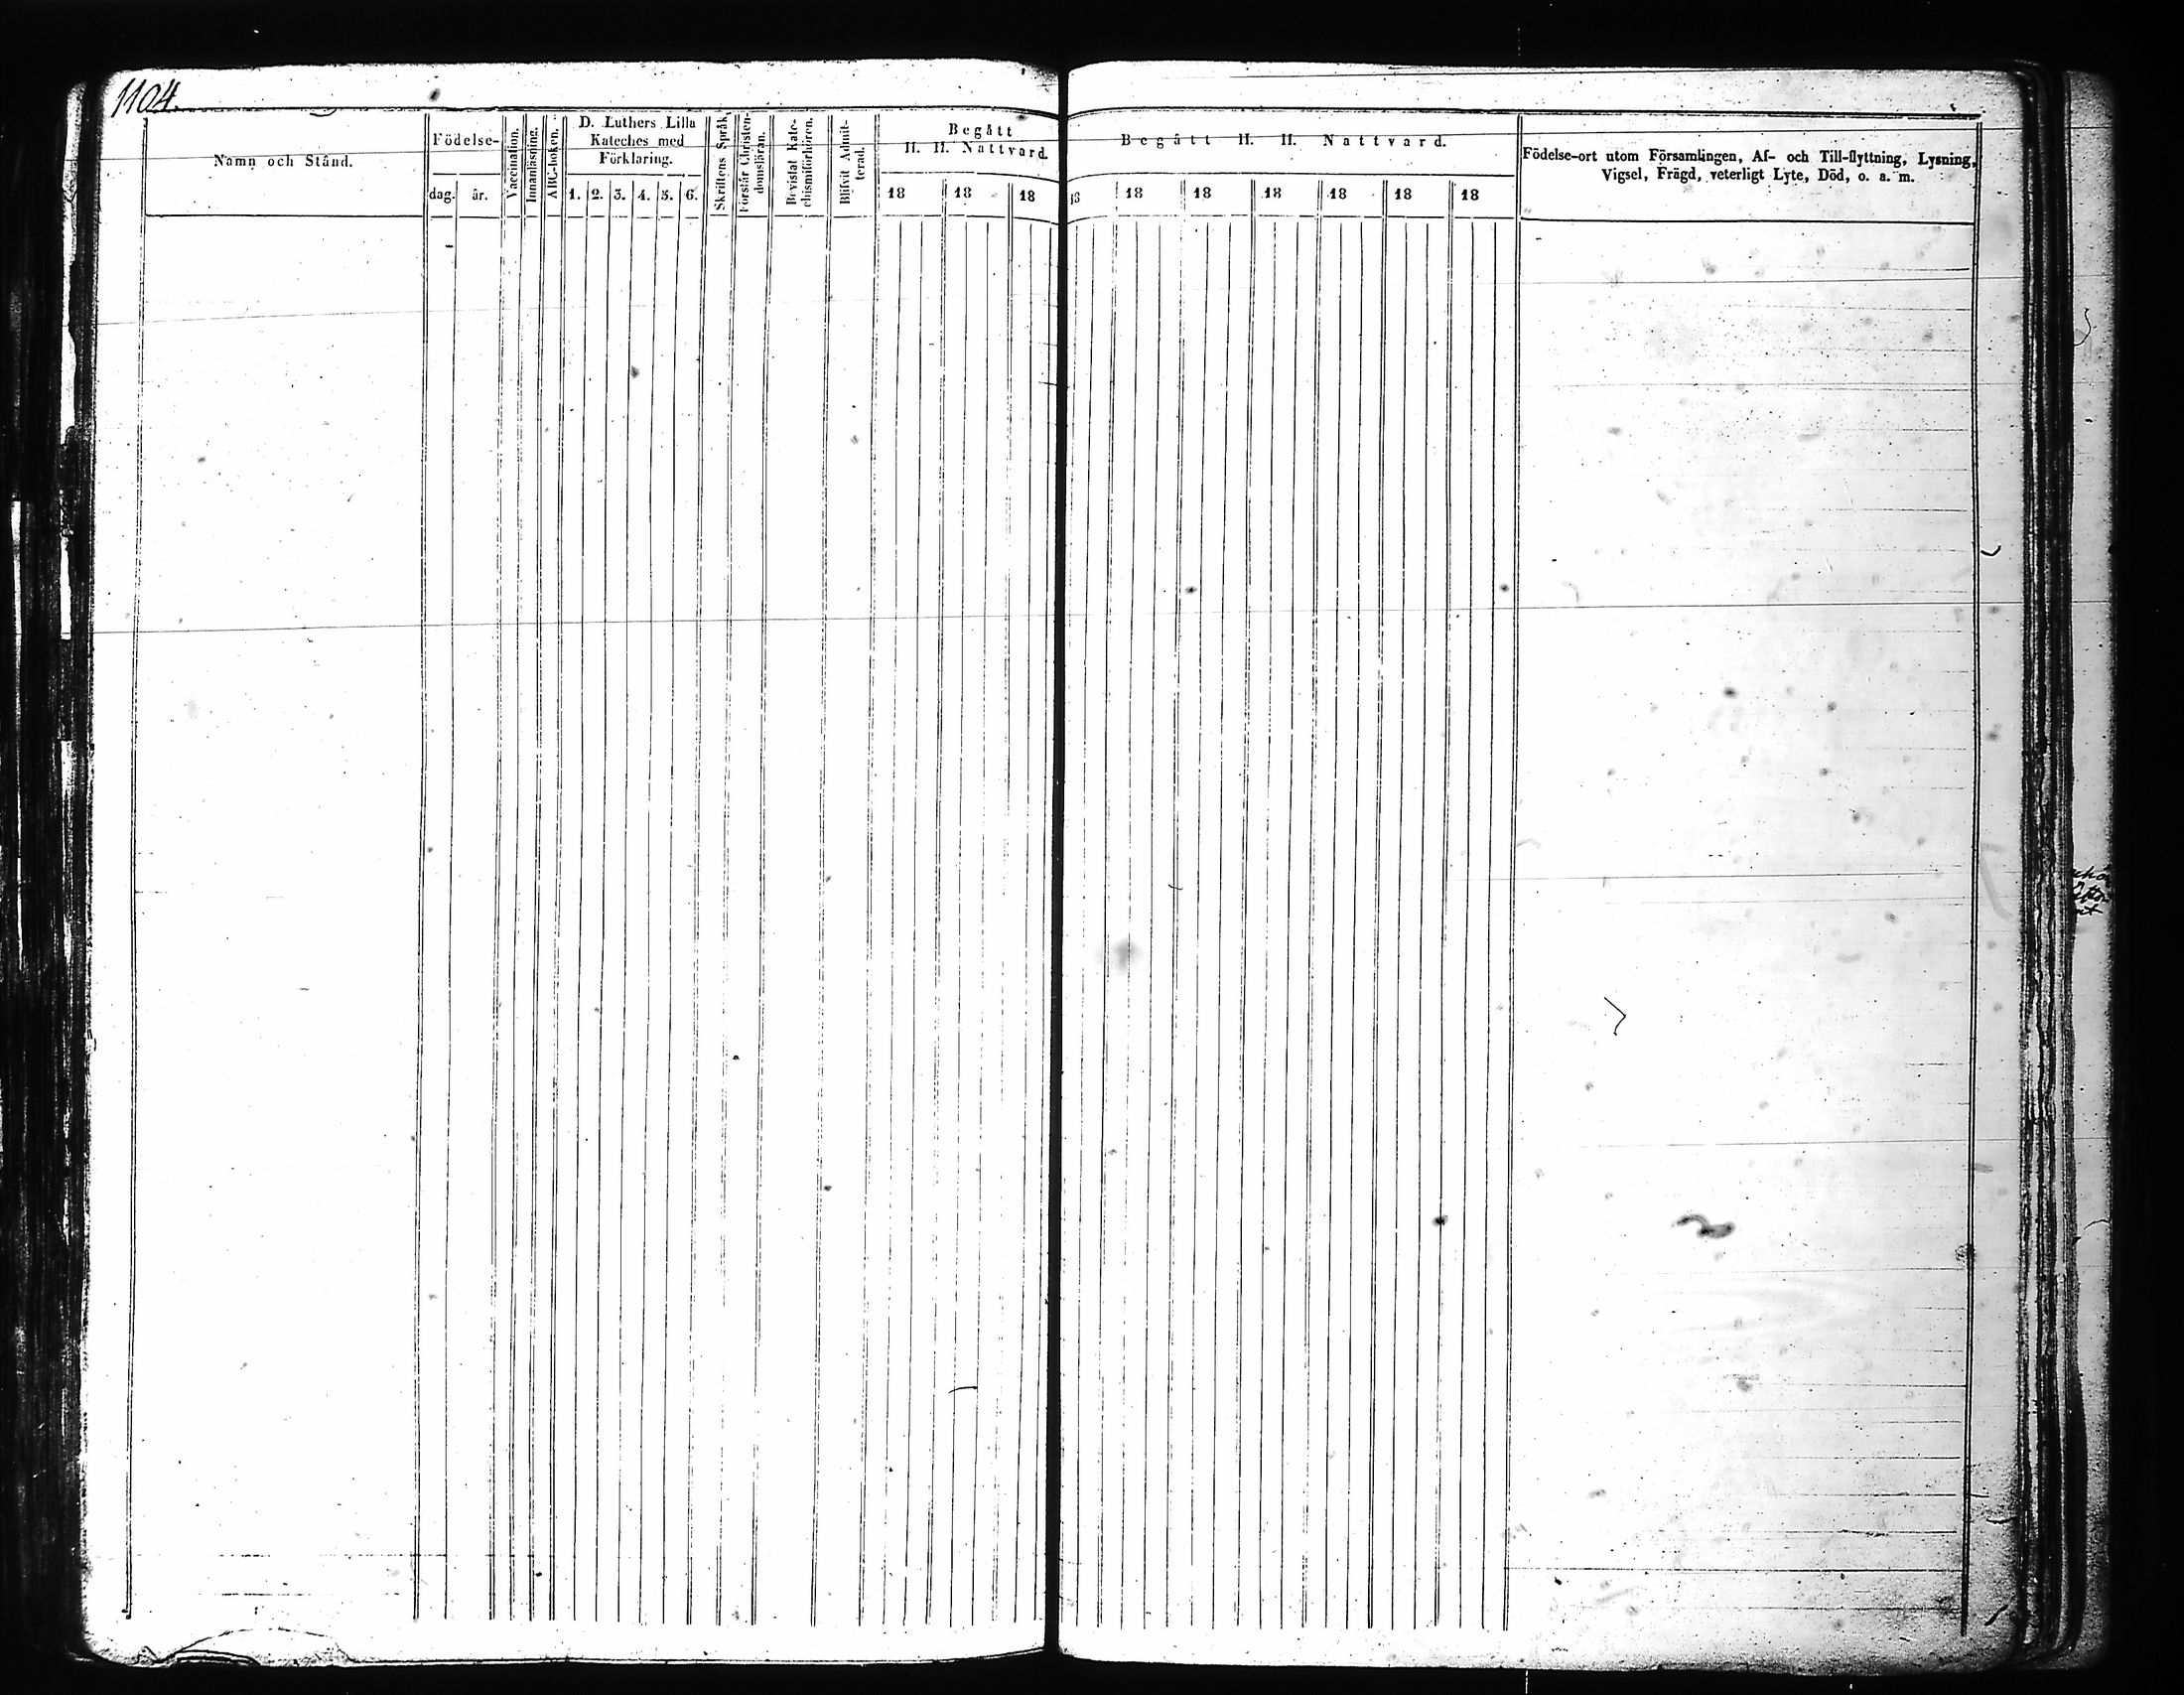 1104.
Namn och Stånd.
Födelse-
dag. år.
Vaccination.
Innanläsning.
ABC-boken.
D. Luthers Lilla
Kateches med
Förklaring.
1. 2. 3. 4. 5. 6.
Skriftens Språk.
Förstår Christen-
domsläran.
Bevistat Kate-
chismiförhören.
Blifvit Admit-
terad.
Begått
H. H. Nattvard.
18 18 18
Begått H. H. Nattvard.
18 18 18 18 18 18 18
Födelse-ort utom Församlingen, Af- och Till-flyttning, Lysning,
Vigsel, Frägd, veterligt Lyte, Död, o. a. m.